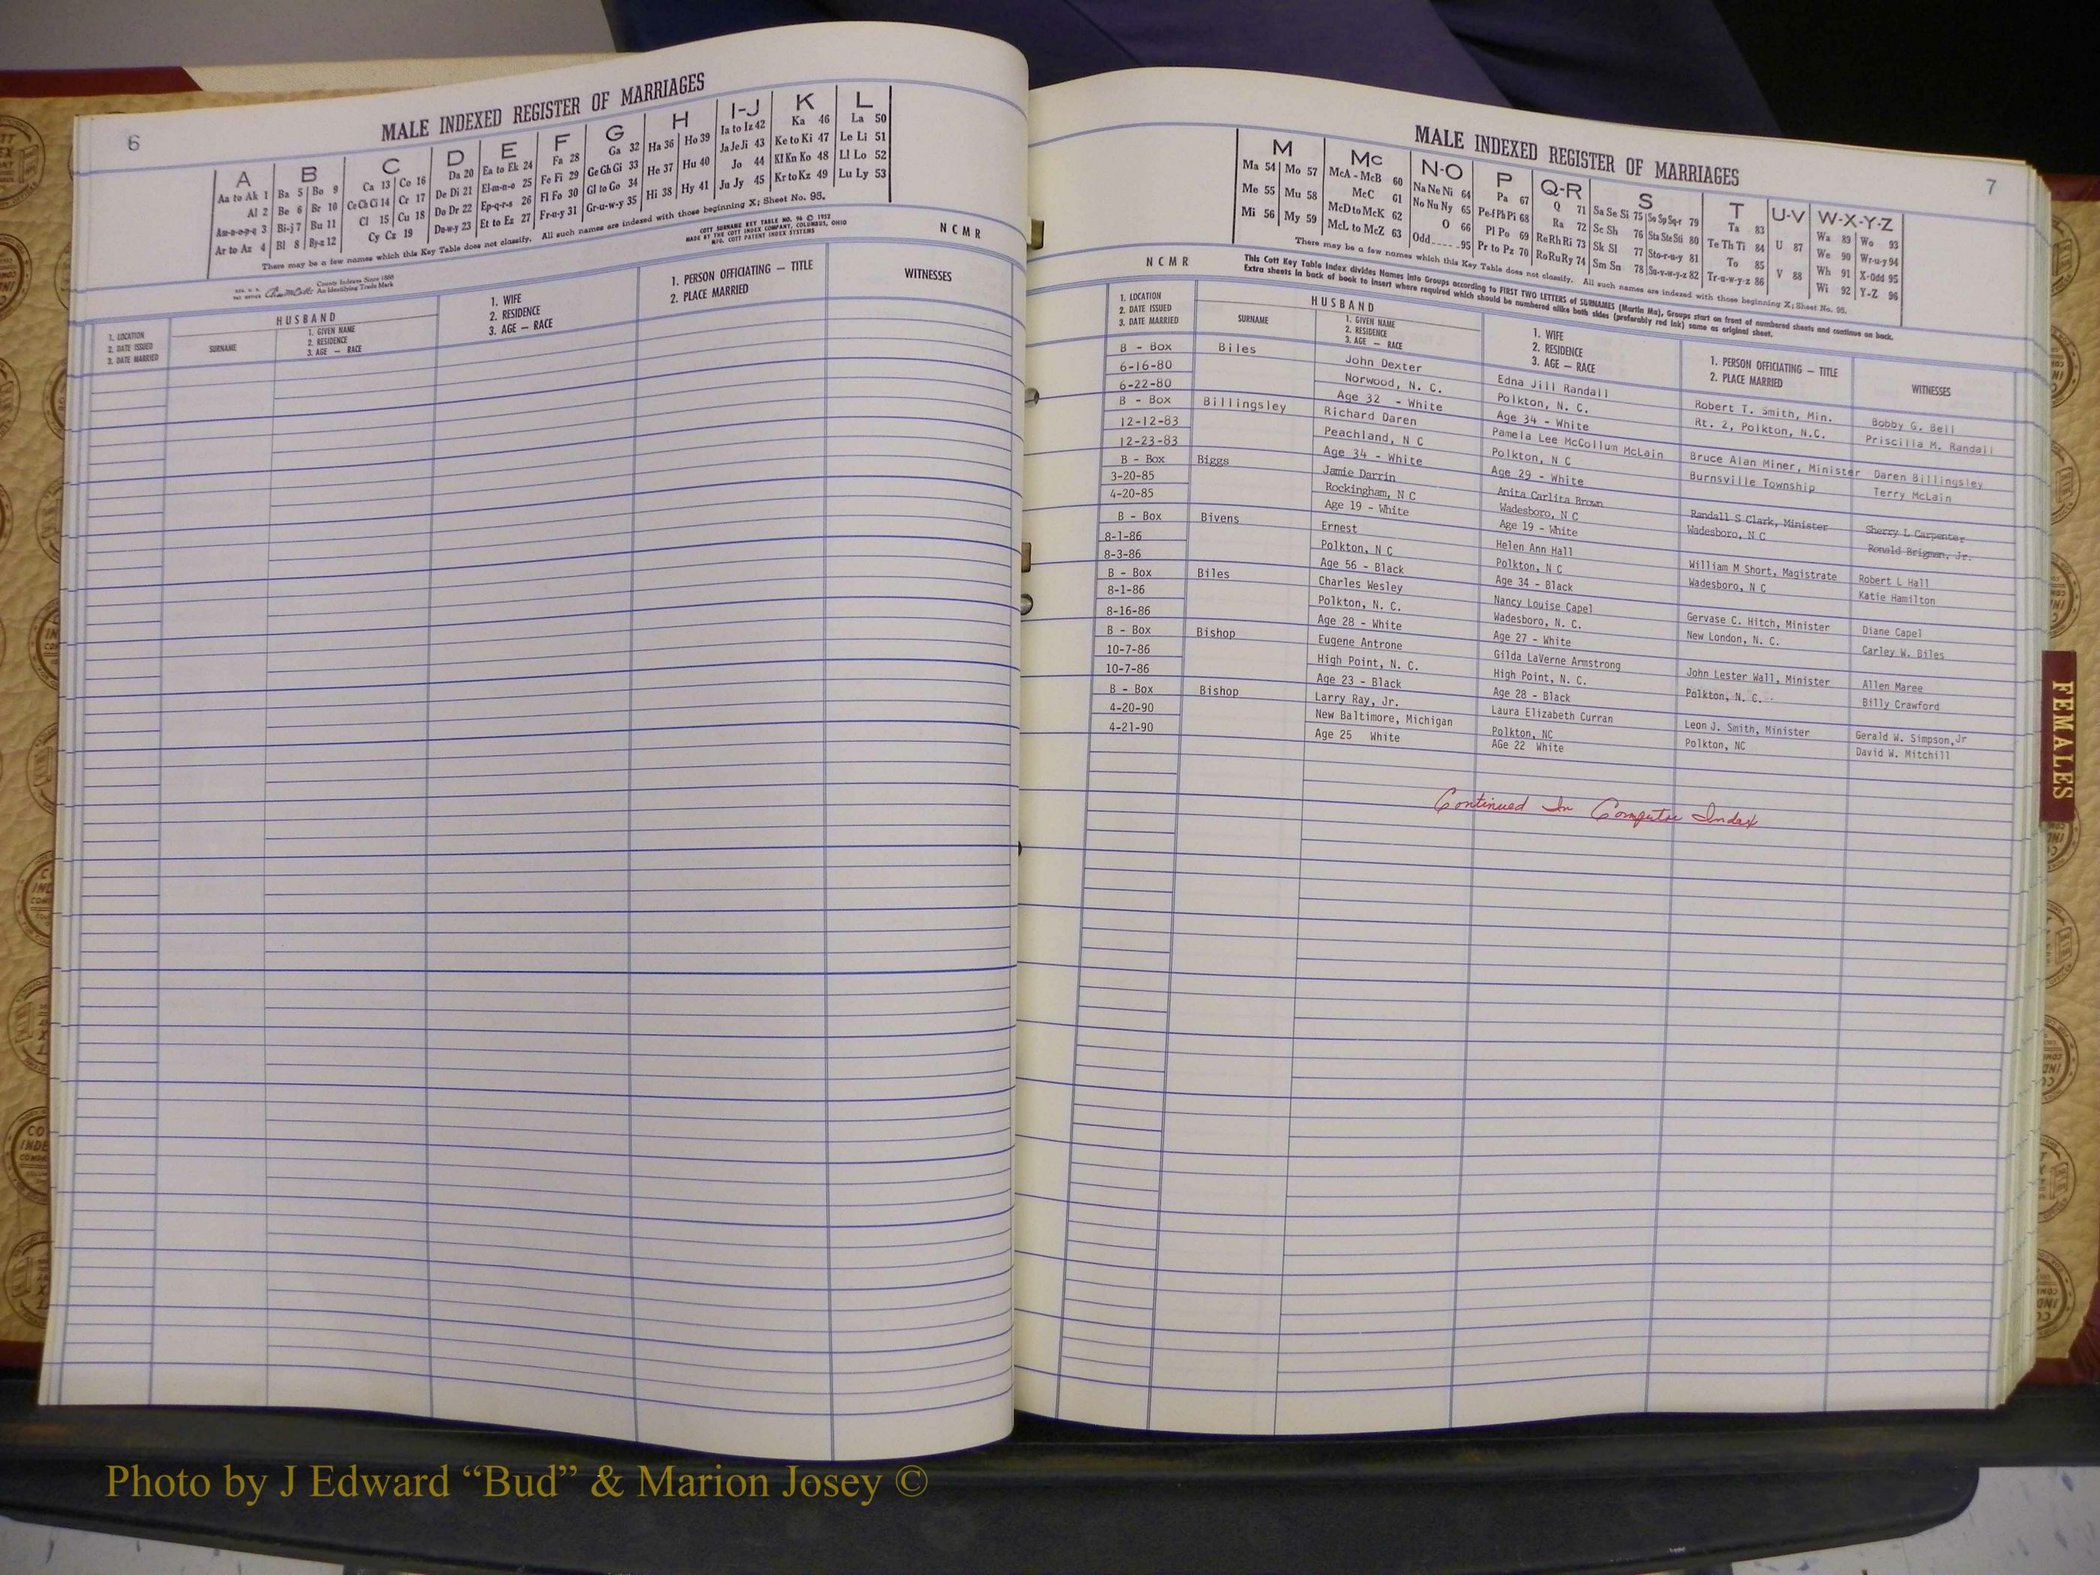 6
MALE INDEXED REGISTER OF MARRIAGES
A B C D E F G H I-J K L
Aa to Ak 1 Ba 5 Bo 9 Ca 13 Co 16 Da 20 Ea to Ek 24 Fa 28 Ga 32 Ha 36 Ho 39 Ia to Iz 42 Ka 46 La 50
Al 2 Be 6 Br 10 Ce Ch Ci 14 Cr 17 De Di 21 El-m-n-o 25 Fe Fi 29 Ge Gh Gi 33 He 37 Hu 40 Ja Je Ji 43 Ke to Ki 47 Le Li 51
Am-n-o-p-q 3 Bi-j 7 Bu 11 Cl 15 Cu 18 Do Dr 22 Ep-q-r-s 26 Fl Fo 30 Gl to Go 34 Hi 38 Hy 41 Jo 44 Kl Kn Ko 48 Ll Lo 52
Ar to Az 4 Bl 8 By-z 12 Cy Cz 19 Du-w-y 23 Et to Ez 27 Fr-u-y 31 Gr-u-w-y 35 Ju Jy 45 Kr to Kz 49 Lu Ly 53
There may be a few names which this Key Table does not classify. All such names are indexed with those beginning X; Sheet No. 95.
County Indexes Since 1888
An Identifying Trade Mark
COTT SURNAME KEY TABLE NO. 96 © 1952
MADE BY THE COTT INDEX COMPANY, COLUMBUS, OHIO
MFG. COTT PATENT INDEX SYSTEMS
NCMR
1. LOCATION
2. DATE ISSUED
3. DATE MARRIED
HUSBAND
SURNAME
1. GIVEN NAME
2. RESIDENCE
3. AGE — RACE
1. WIFE
2. RESIDENCE
3. AGE — RACE
1. PERSON OFFICIATING — TITLE
2. PLACE MARRIED
WITNESSES
MALE INDEXED REGISTER OF MARRIAGES
7
M Mc N-O P Q-R S T U-V W-X-Y-Z
Ma 54 Mo 57 McA - McB 60 Na Ne Ni 64 Pa 67 Q 71 Sa Se Si 75 So Sp Sq-r 79 Ta 83 U 87 Wa 89 Wo 93
Me 55 Mu 58 McC 61 No Nu Ny 65 Pe-f Ph Pi 68 Ra 72 Sc Sh 76 Sta Ste Sti 80 Te Th Ti 84 V 88 We 90 Wr-u-y 94
Mi 56 My 59 McD to McK 62 O 66 Pl Po 69 Re Rh Ri 73 Sk Sl 77 Sto-r-u-y 81 To 85 Wh 91 X-Odd 95
McL to McZ 63 Odd-----95 Pr to Pz 70 Ro Ru Ry 74 Sm Sn 78 Su-v-w-y-z 82 Tr-u-w-y-z 86 Wi 92 Y-Z 96
There may be a few names which this Key Table does not classify. All such names are indexed with those beginning X; Sheet No. 95.
NCMR
This Cott Key Table Index divides Names into Groups according to FIRST TWO LETTERS of SURNAMES (Martin Ma), Groups start on front of numbered sheets and continue on back.
Extra sheets in back of book to insert where required which should be numbered alike both sides (preferably red ink) same as original sheet.
1. LOCATION
2. DATE ISSUED
3. DATE MARRIED
HUSBAND
SURNAME
1. GIVEN NAME
2. RESIDENCE
3. AGE — RACE
1. WIFE
2. RESIDENCE
3. AGE — RACE
1. PERSON OFFICIATING — TITLE
2. PLACE MARRIED
WITNESSES
B - Box Biles John Dexter Edna Jill Randall Robert T. Smith, Min. Bobby G. Bell
6-16-80 Norwood, N. C. Polkton, N. C. Rt. 2, Polkton, N.C. Priscilla M. Randall
6-22-80 Age 32 - White Age 34 - White
B - Box Billingsley Richard Daren Pamela Lee McCollum McLain Bruce Alan Miner, Minister Daren Billingsley
12-12-83 Peachland, N C Polkton, N C Burnsville Township Terry McLain
12-23-83 Age 34 - White Age 29 - White
B - Box Biggs Jamie Darrin Anita Carlita Brown Randall S Clark, Minister Sherry L Carpenter
3-20-85 Rockingham, N C Wadesboro, N C Wadesboro, N C Ronald Brigman, Jr.
4-20-85 Age 19 - White Age 19 - White
B - Box Bivens Ernest Helen Ann Hall William M Short, Magistrate Robert L Hall
8-1-86 Polkton, N C Polkton, N C Wadesboro, N C Katie Hamilton
8-3-86 Age 56 - Black Age 34 - Black
B - Box Biles Charles Wesley Nancy Louise Capel Gervase C. Hitch, Minister Diane Capel
8-1-86 Polkton, N. C. Wadesboro, N. C. New London, N. C. Carley W. Biles
8-16-86 Age 28 - White Age 27 - White
B - Box Bishop Eugene Antrone Gilda LaVerne Armstrong John Lester Wall, Minister Allen Maree
10-7-86 High Point, N. C. High Point, N. C. Polkton, N. C. Billy Crawford
10-7-86 Age 23 - Black Age 28 - Black
B - Box Bishop Larry Ray, Jr. Laura Elizabeth Curran Leon J. Smith, Minister Gerald W. Simpson, Jr
4-20-90 New Baltimore, Michigan Polkton, NC Polkton, NC David W. Mitchill
4-21-90 Age 25 White AGe 22 White
Continued In Computer Index
FEMALES
Photo by J Edward “Bud” & Marion Josey ©